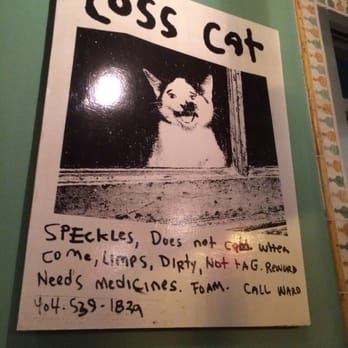 Loss Cat
SPEckLES, Does not coll when
come, Limps, Dirty, Not tAG. REWORD
Need's medicines. FOAM. CALL WARD
404-539-1832